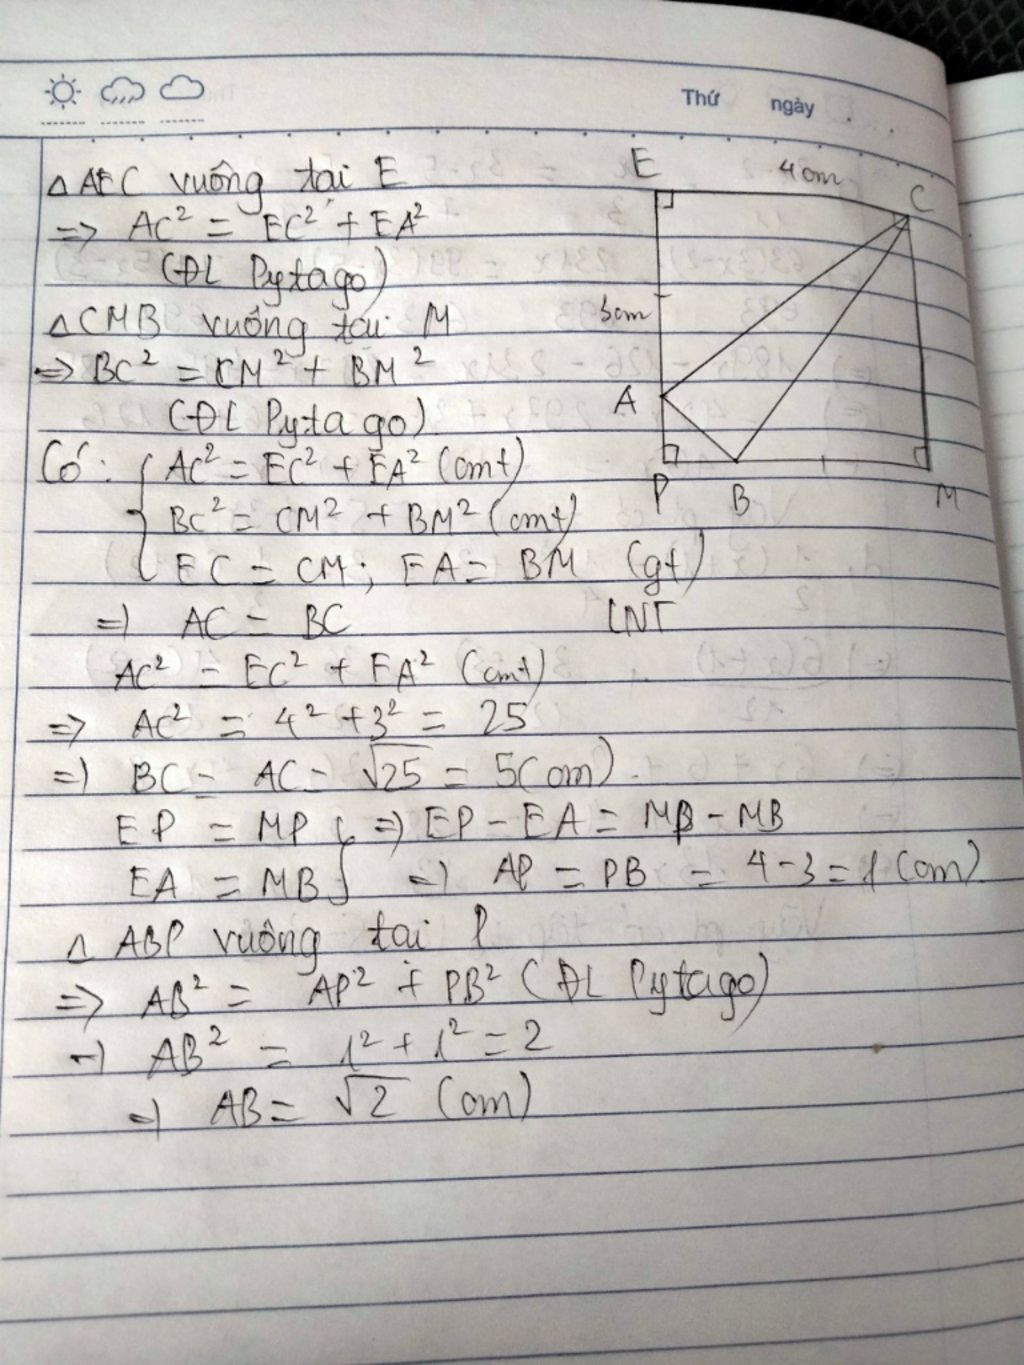 Thứ ngày
E 4cm C
3cm
A
P B M
△ AEC vuông tại E
=> AC² = EC² + EA²
(ĐL Pytago)
△ CMB vuông tại M
=> BC² = CM² + BM²
(ĐL Pytago)
Có: { AC² = EC² + EA² (cmt)
BC² = CM² + BM² (cmt)
EC = CM; EA = BM (gt)
=> AC = BC
AC² = EC² + EA² (cmt)
=> AC² = 4² + 3² = 25
=> BC = AC = √25 = 5(cm).
EP = MP } => EP - EA = MP - MB
EA = MB => AP = PB = 4 - 3 = 1 (cm)
△ ABP vuông tại P
=> AB² = AP² + PB² (ĐL Pytago)
=> AB² = 1² + 1² = 2
=> AB = √2 (cm)